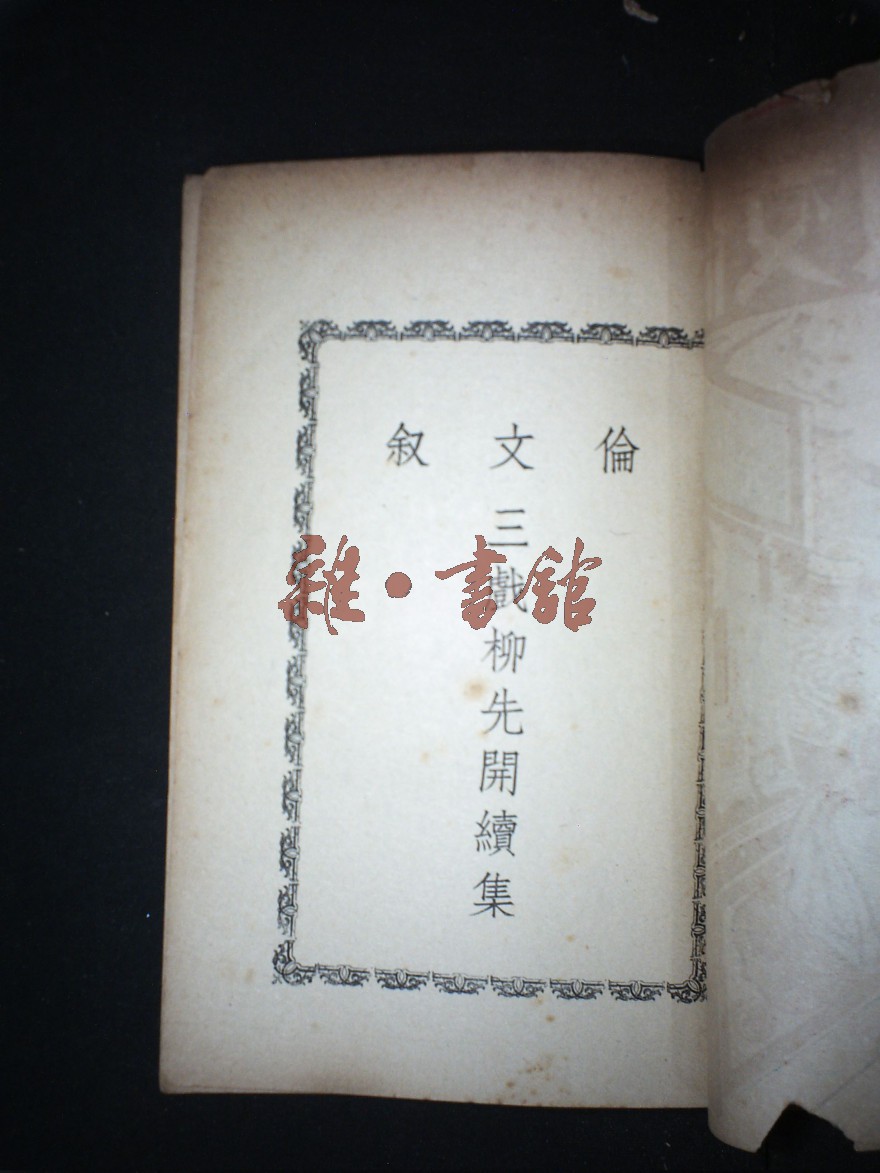 倫文叙
三戲柳先開續集
雜·書館